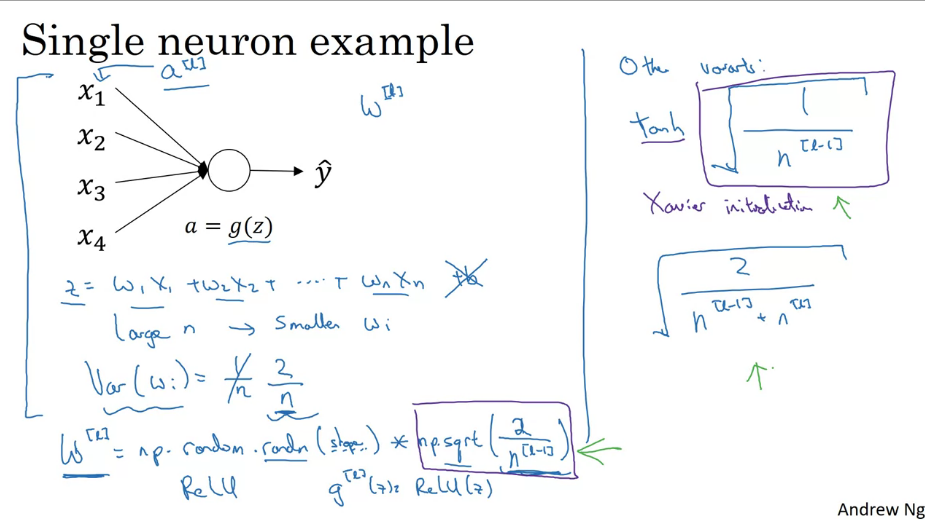 Single neuron example
a^[l]
x₁
x₂
x₃
x₄
ŷ
w^[l]
a = g(z)
z = w₁x₁ + w₂x₂ + ... + wₙxₙ + b
Large n → Smaller wᵢ
Var(wᵢ) = 1/n 2/n
W^[l] = np.random.randn(shape) * np.sqrt(2/n^[l-1])
ReLU g^[l](z) = ReLU(z)
Other variants:
tanh √(1/n^[l-1])
Xavier initialization
√(2/(n^[l-1] + n^[l]))
Andrew Ng